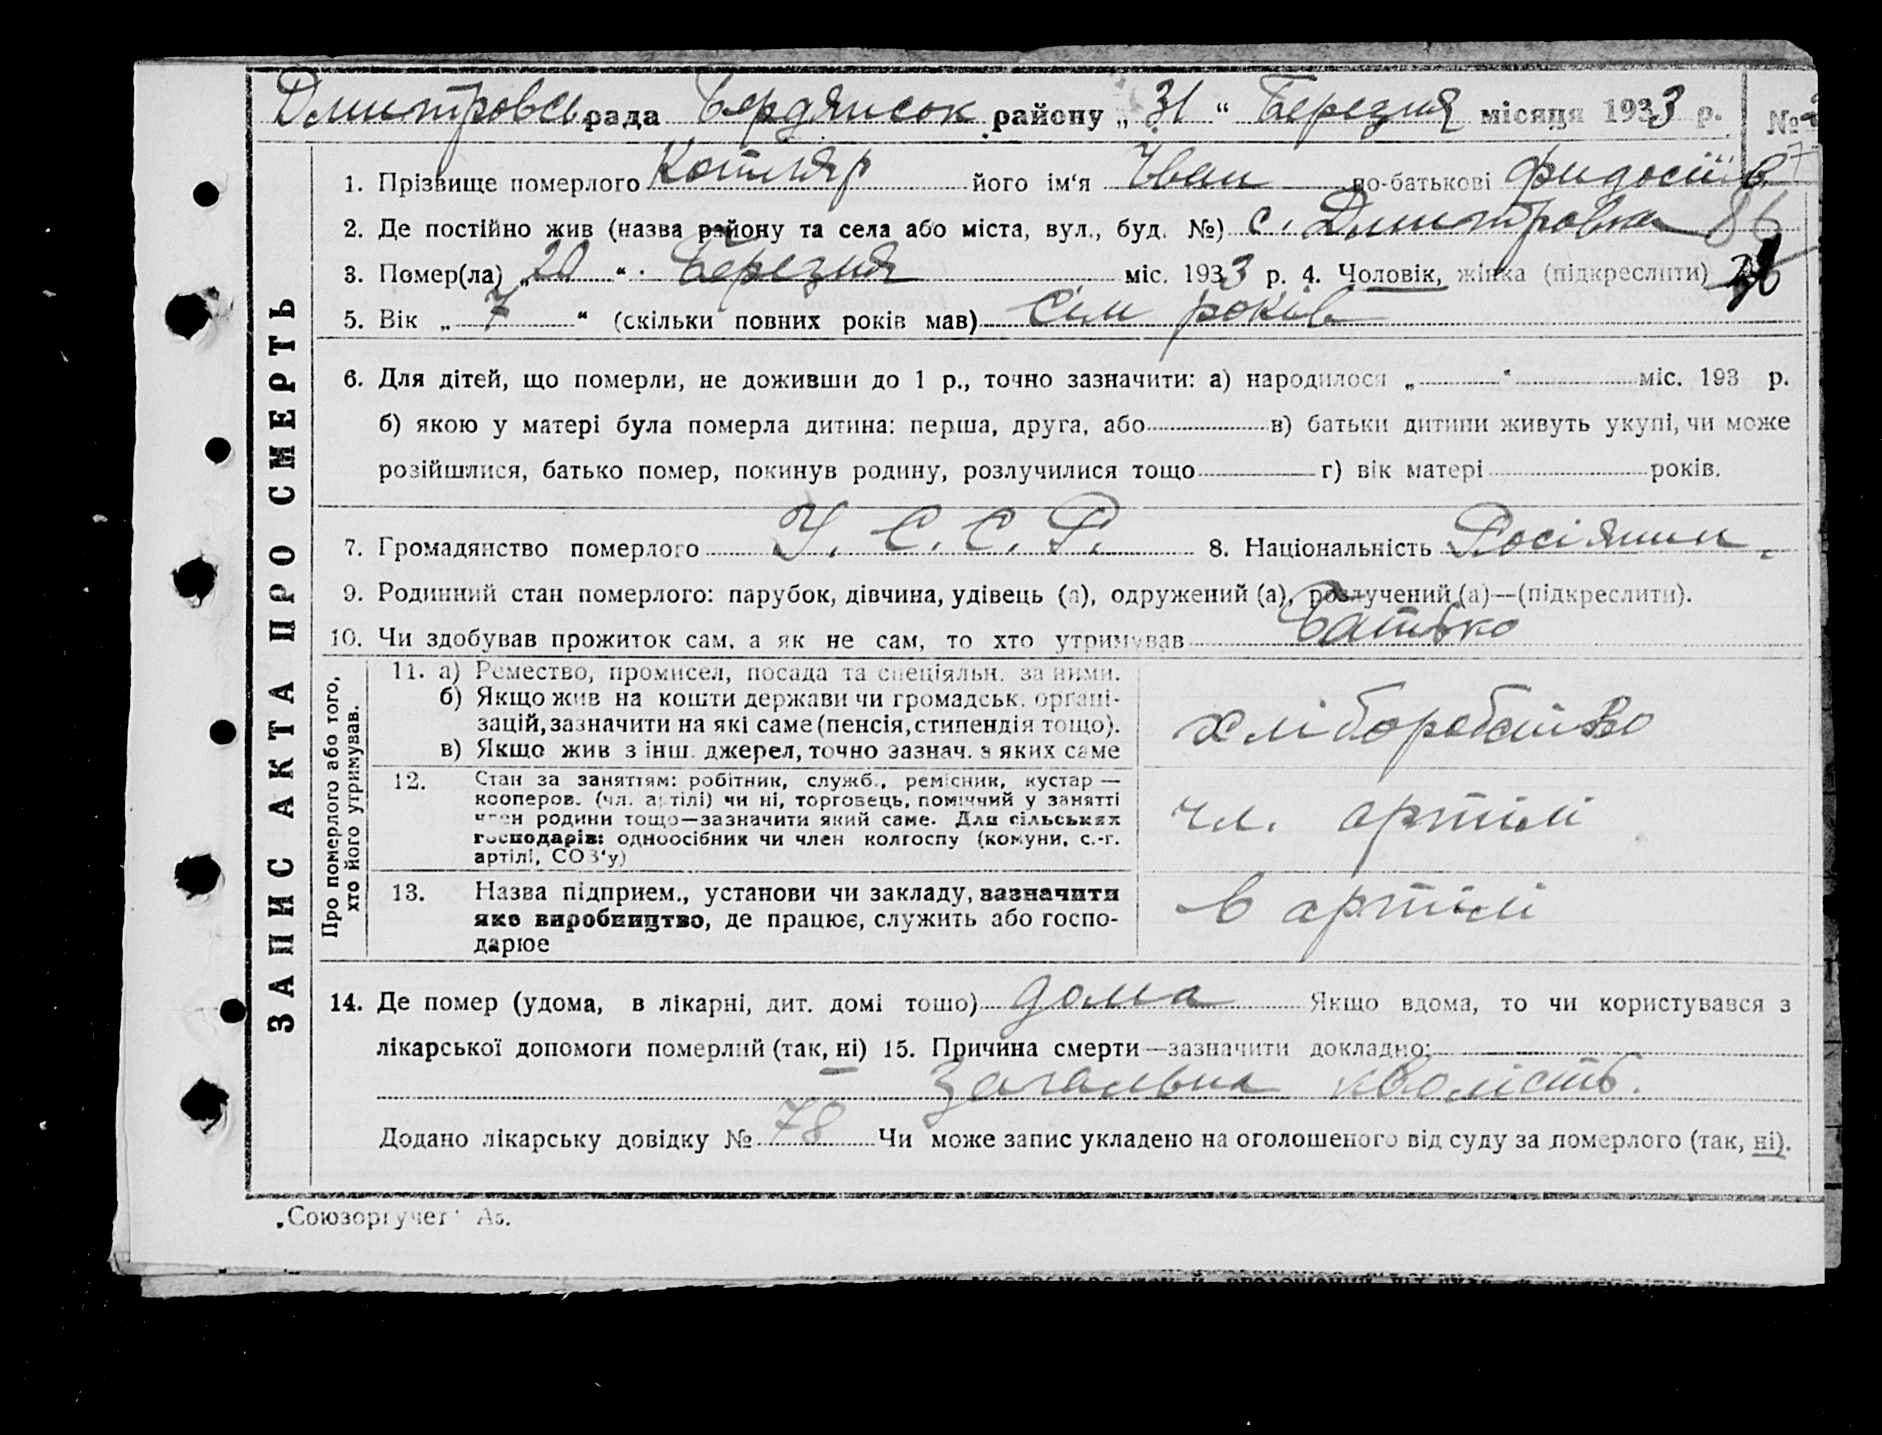 Дмитровсь рада Бердянськ району „31“ Березня місяця 1933 р. №
1. Прізвище померлого Котляр його ім'я Іван по-батькові Фидосіїв
2. Де постійно жив (назва району та села або міста, вул., буд. №) с. Дмитровка 86
3. Помер(ла) „20“ Березня міс. 1933 р. 4. Чоловік, жінка (підкреслити)
5. Вік „7“ (скільки повних років мав) Сім років
6. Для дітей, що померли, не доживши до 1 р., точно зазначити: а) народилося „ “ міс. 193 р.
б) якою у матері була померла дитина: перша, друга, або в) батьки дитини живуть укупі, чи може
розійшлися, батько помер, покинув родину, розлучилися тощо г) вік матері років.
7. Громадянство померлого У. С. С. Р. 8. Національність Росіянин.
9. Родинний стан померлого: парубок, дівчина, удівець (а), одружений (а), розлучений (а)—(підкреслити).
10. Чи здобував прожиток сам, а як не сам, то хто утримував Батько
ЗАПИС АКТА ПРО СМЕРТЬ
Про померлого або того,
хто його утримував.
11. а) Ремество, промисел, посада та спеціяльн. за ними.
б) Якщо жив на кошти держави чи громадськ. органі-
зацій, зазначити на які саме (пенсія, стипендія тощо).
в) Якщо жив з інш. джерел, точно зазнач. з яких саме
хліборобство
12. Стан за заняттям: робітник, служб., ремісник, кустар —
кооперов. (чл. артілі) чи ні, торговець, помічний у занятті
член родини тощо—зазначити який саме. Для сільських
господарів: одноосібник чи член колгоспу (комуни, с.-г.
артілі, СОЗ'у)
чл. артілі
13. Назва підприєм., установи чи закладу, зазначити
яке виробництво, де працює, служить або госпо-
дарює
в артілі
14. Де помер (удома, в лікарні, дит. домі тощо) дома Якщо вдома, то чи користувався з
лікарської допомоги померлий (так, ні) 15. Причина смерти—зазначити докладно:
Загальна кволість.
Додано лікарську довідку № 78 Чи може запис укладено на оголошеного від суду за померлого (так, ні).
„Союзоргучет“ Аз.